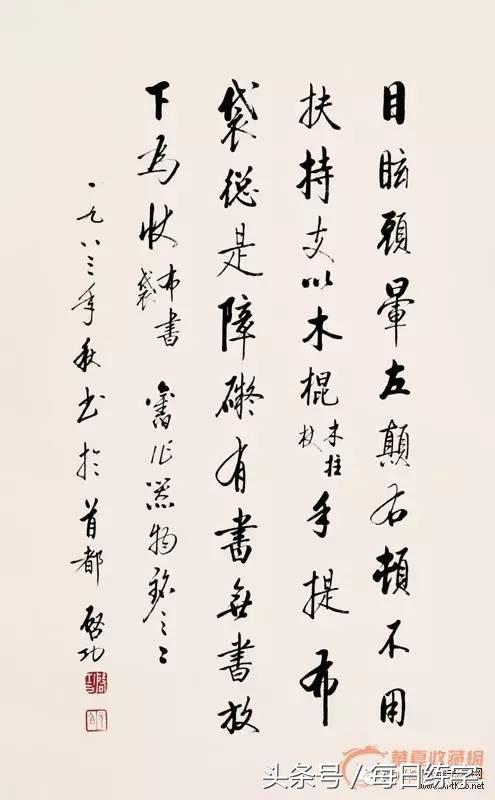 目眩頭暈左顛右頓不用
扶持支以木棍木拄杖手提布
袋總是障礙有書無書放
下為快布書袋 舊作器物銘之二
一九八三年秋書於首都 啟功
華夏收藏網
头条号 / 每日练字